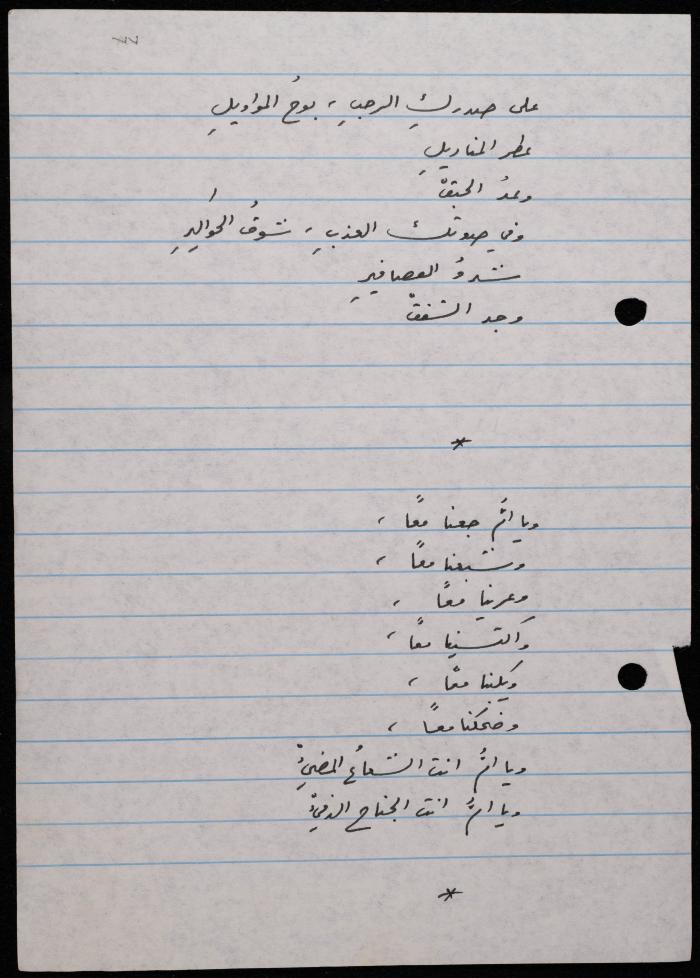 على صدركِ الرحبِ ، بوحُ المواويلِ
عطر المناديلِ
وعدُ الحبقْ
وفي صوتك العذبِ ، شوقُ
شدوُ العصافيرِ
وجد الشفقْ
*
ويا أمّ جعنا معًا ،
وشبعنا معًا ،
وعرينا معًا ،
واكتسينا معًا ،
وبكينا معًا ،
وضحكنا معًا ،
ويا أمُّ انت الشعاعُ المضيءْ
ويا أمُّ انت الجناح الدفيءْ
*